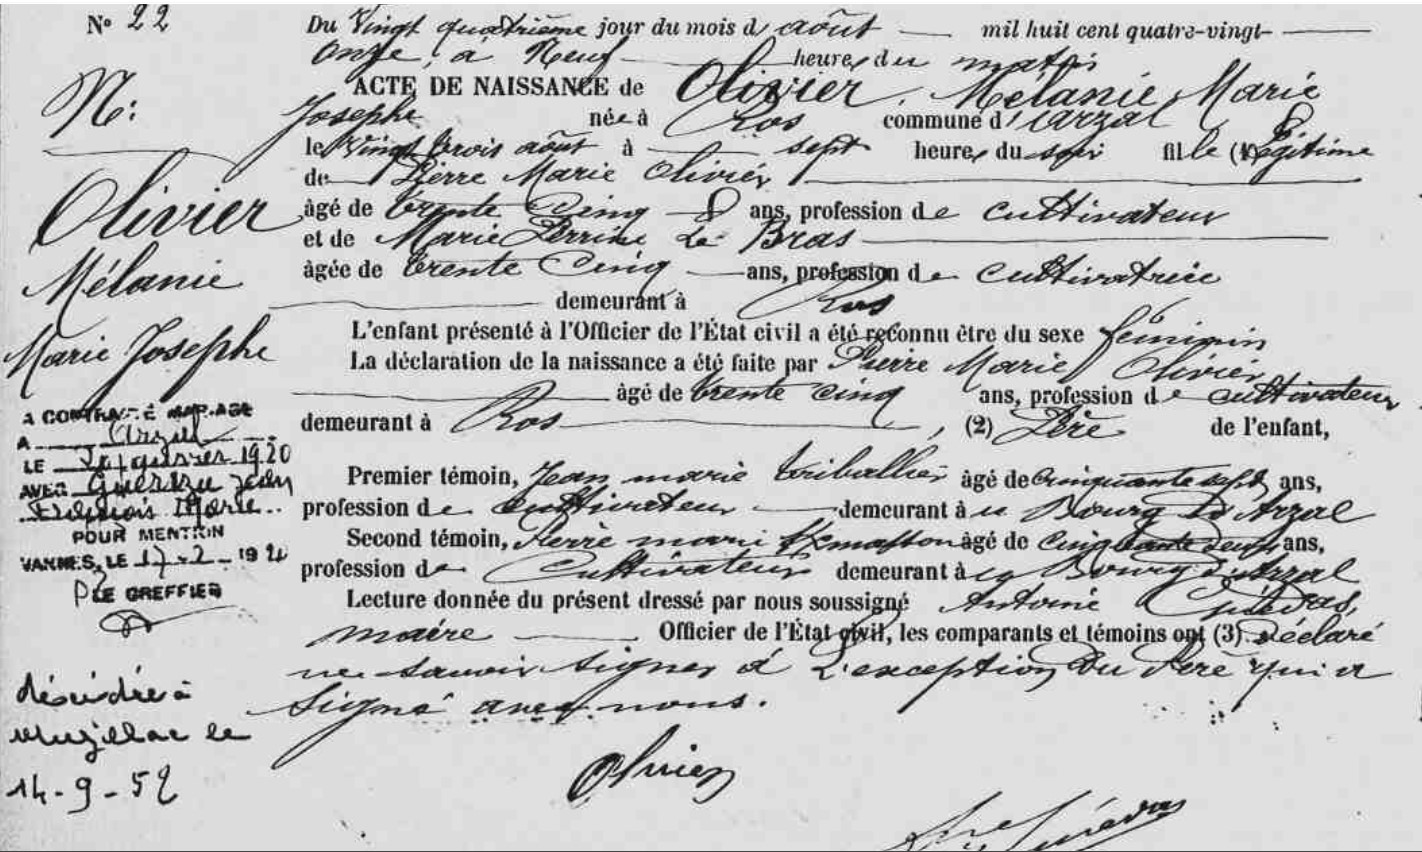 N° 22
N:
Olivier
Mélanie
Marie Josephe
A CONTRACTÉ MARIAGE
A Arzal
LE janvier 1920
AVEC Jean
Marie
POUR MENTION
VANNES, LE 17-2-192
P LE GREFFIER
décédée à
Muzillac le
14-9-52
Du Vingt quatrième jour du mois d août mil huit cent quatre-vingt-
Onze, à Neuf heures du matin
ACTE DE NAISSANCE de Olivier, Mélanie Marie
Josephe née à Ros commune d'Arzal
le Vingt trois août à sept heures du soir fille (1) légitime
de Pierre Marie Olivier
âgé de trente Cinq ans, profession de cultivateur
et de Marie Perrine Le Bras
âgée de trente Cinq ans, profession de cultivatrice
demeurant à Ros
L'enfant présenté à l'Officier de l'État civil a été reconnu être du sexe féminin
La déclaration de la naissance a été faite par Pierre Marie Olivier
âgé de trente cinq ans, profession de cultivateur
demeurant à Ros, (2) Père de l'enfant,
Premier témoin, Jean marie triballier âgé de cinquante sept ans,
profession de cultivateur demeurant à u Bourg D'Arzal
Second témoin, Pierre marie âgé de cinquante deux ans,
profession de Cultivateur demeurant à Bourg d'Arzal
Lecture donnée du présent dressé par nous soussigné Antoine
maire Officier de l'État civil, les comparants et témoins ont (3) Déclaré
ne savoir signer à L'exception du Père qui a
signé avec nous.
Olivier